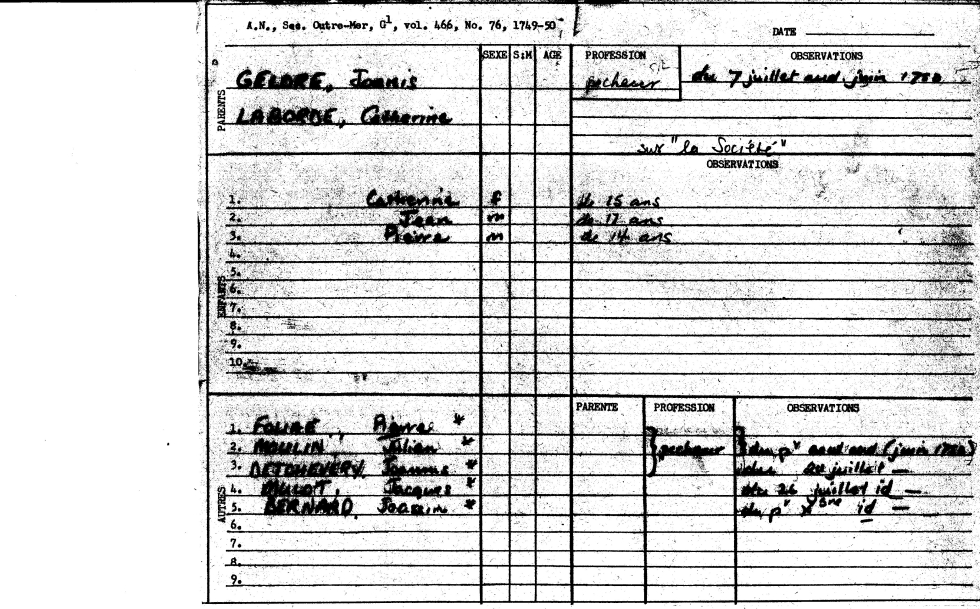 A.N., Sec. Outre-Mer, G1, vol. 466, No. 76, 1749-50
DATE
SEXE S:M AGE PROFESSION OBSERVATIONS
PARENTS
GELDRE, Joannis pecheur du 7 juillet aud juin 1750
LABORDE, Catherine
sur "la Société"
OBSERVATIONS
ENFANTS
1. Catherine f de 15 ans
2. Jean m de 17 ans
3. Pierre m de 14 ans
4.
5.
6.
7.
8.
9.
10.
PARENTE PROFESSION OBSERVATIONS
AUTRES
1. Pierre *
2. MOULIN Julien * pecheur du pr aud (juin 1750)
3. DETCHEVERY Joannis * du juillet —
4. Jacques * du 26 juillet id —
5. BERNARD * du pr xbre id —
6.
7.
8.
9.